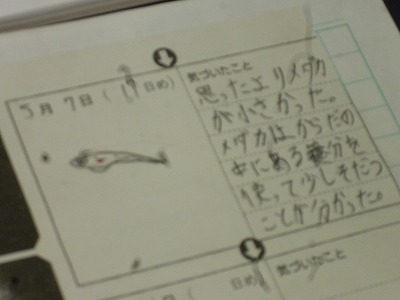 5月7日(19日め)
気づいたこと
思ったよりメダカ
が小さかった。
メダカはからだの
中にある養分を
使って少しそだつ
ことが分かった。
日め)
気づいたこと